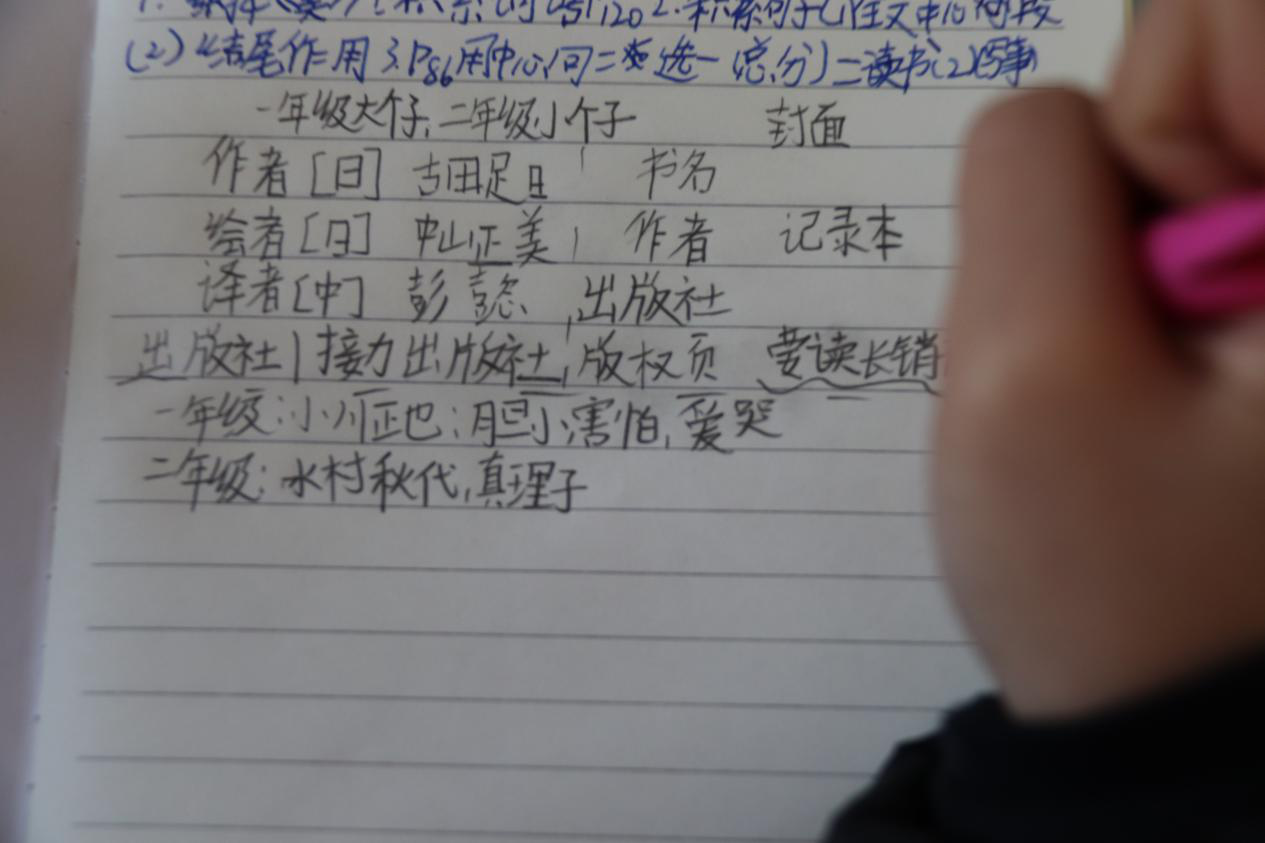 (2)结尾作用 3.P86用中心句二选一(总分)二读书(2)写事
一年级大个子,二年级小个子 封面
作者[日] 古田足日 书名
绘者[日] 中山正美 作者 记录本
译者[中] 彭懿 出版社
出版社|接力出版社,版权页 要读长销
一年级:小小正也:胆小害怕,爱哭
二年级:水村秋代,真理子